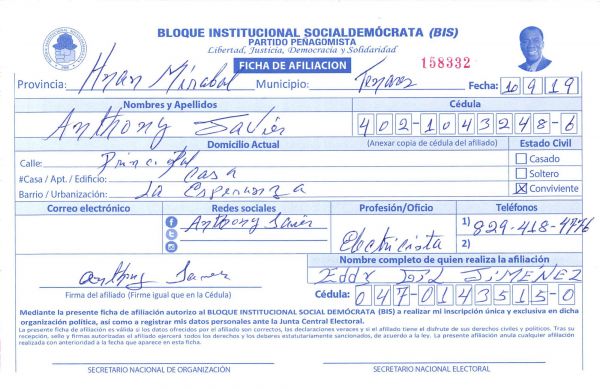 BLOQUE INSTITUCIONAL SOCIALDEMÓCRATA (BIS)
PARTIDO PEÑAGOMISTA
Libertad, Justicia, Democracia y Solidaridad
FICHA DE AFILIACION
158332
Provincia: Hnan Mirabal Municipio: Tenares Fecha: 10 9 19
Nombres y Apellidos Cédula
Anthony Javier 402-1043248-6
(Anexar copia de cédula del afiliado)
Domicilio Actual Estado Civil
Calle: Principal Casado
#Casa / Apt. / Edificio: Casa Soltero
Barrio / Urbanización: La Esperanza Conviviente
Correo electrónico Redes sociales Profesión/Oficio Teléfonos
Anthony Javier Electricista 1) 829-418-4776
2)
Nombre completo de quien realiza la afiliación
Eddy JIMENEZ
Firma del afiliado (Firme igual que en la Cédula)
Cédula: 047-0143515-0
Mediante la presente ficha de afiliación autorizo al BLOQUE INSTITUCIONAL SOCIAL DEMÓCRATA (BIS) a realizar mi inscripción única y exclusiva en dicha
organización política, así como a registrar mis datos personales ante la Junta Central Electoral.
La presente ficha de afiliación es válida si los datos ofrecidos por el afiliado son correctos, las declaraciones veraces y si el afiliado tiene el disfrute de sus derechos civiles y políticos. Tras su
recepción, sello y firmas autorizadas el afiliado ejercerá todos los derechos y los deberes estatutariamente sancionados, de acuerdo a la ley. La presente afiliación anula cualquier afiliación
realizada con anterioridad a la fecha que aparece en esta ficha.
SECRETARIO NACIONAL DE ORGANIZACIÓN SECRETARIO NACIONAL ELECTORAL